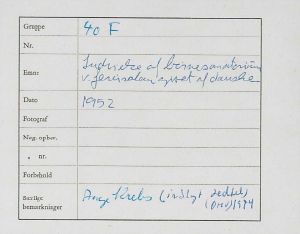 Gruppe 40 F
Nr.
Emne Indvielse af børnesanatorium
v. Jerusalem, givet af danske
Dato 1952
Fotograf
Neg. opbev.
„ nr.
Forbehold
Særlige Aage Krebs (indlagt seddel)
bemærkninger 1974